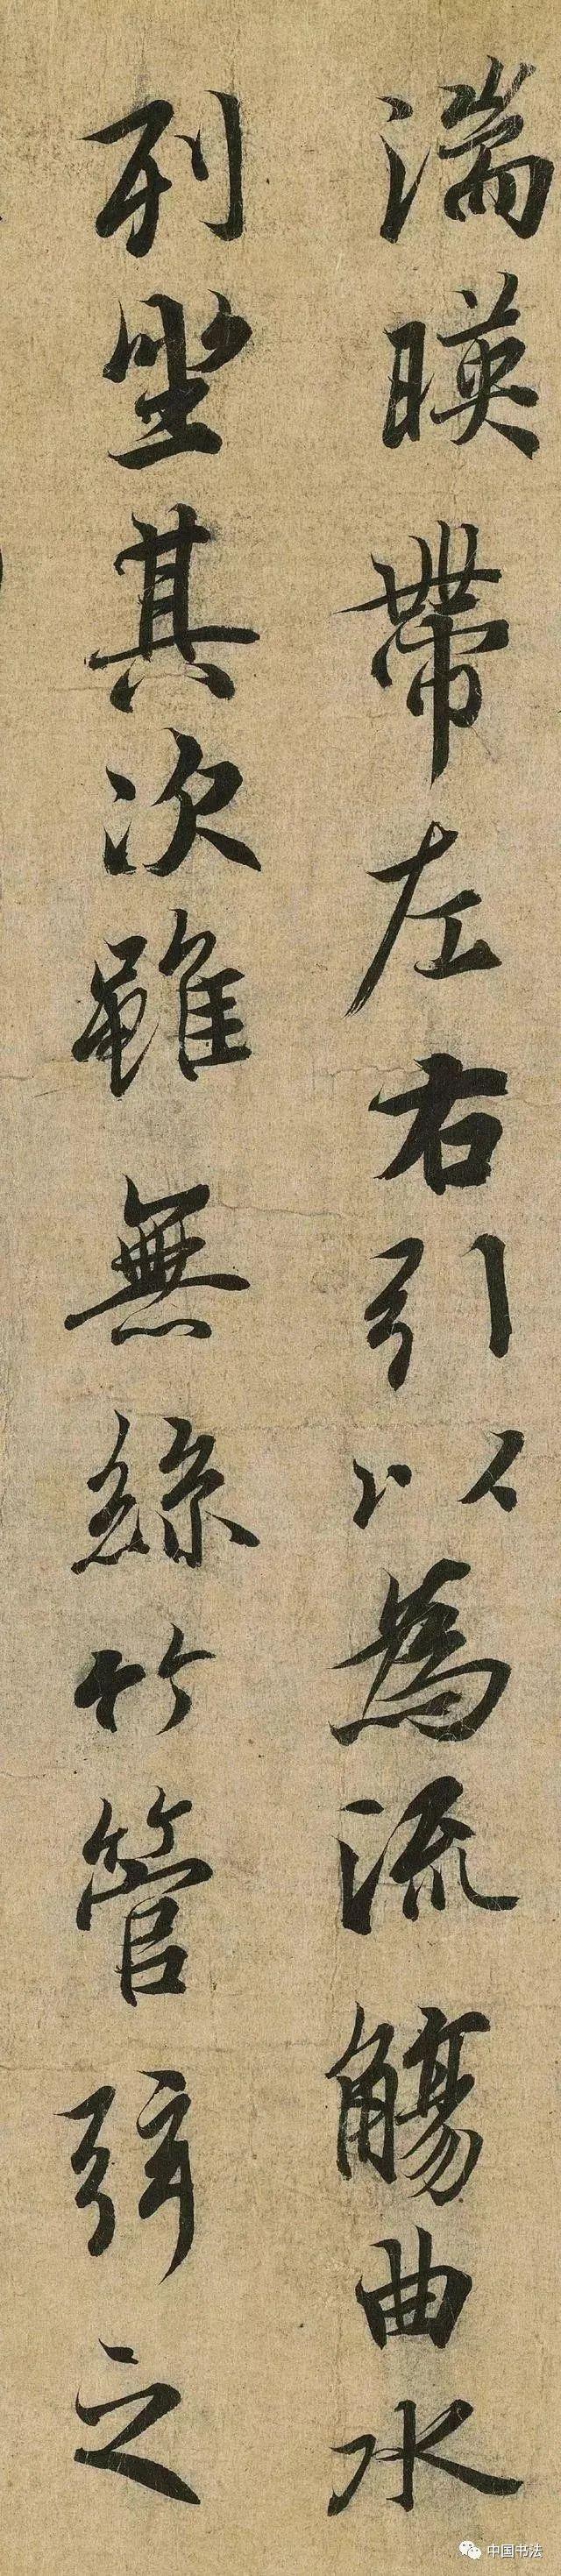 湍暎帶左右引以為流觴曲水
列坐其次雖無絲竹管弦之
中国书法